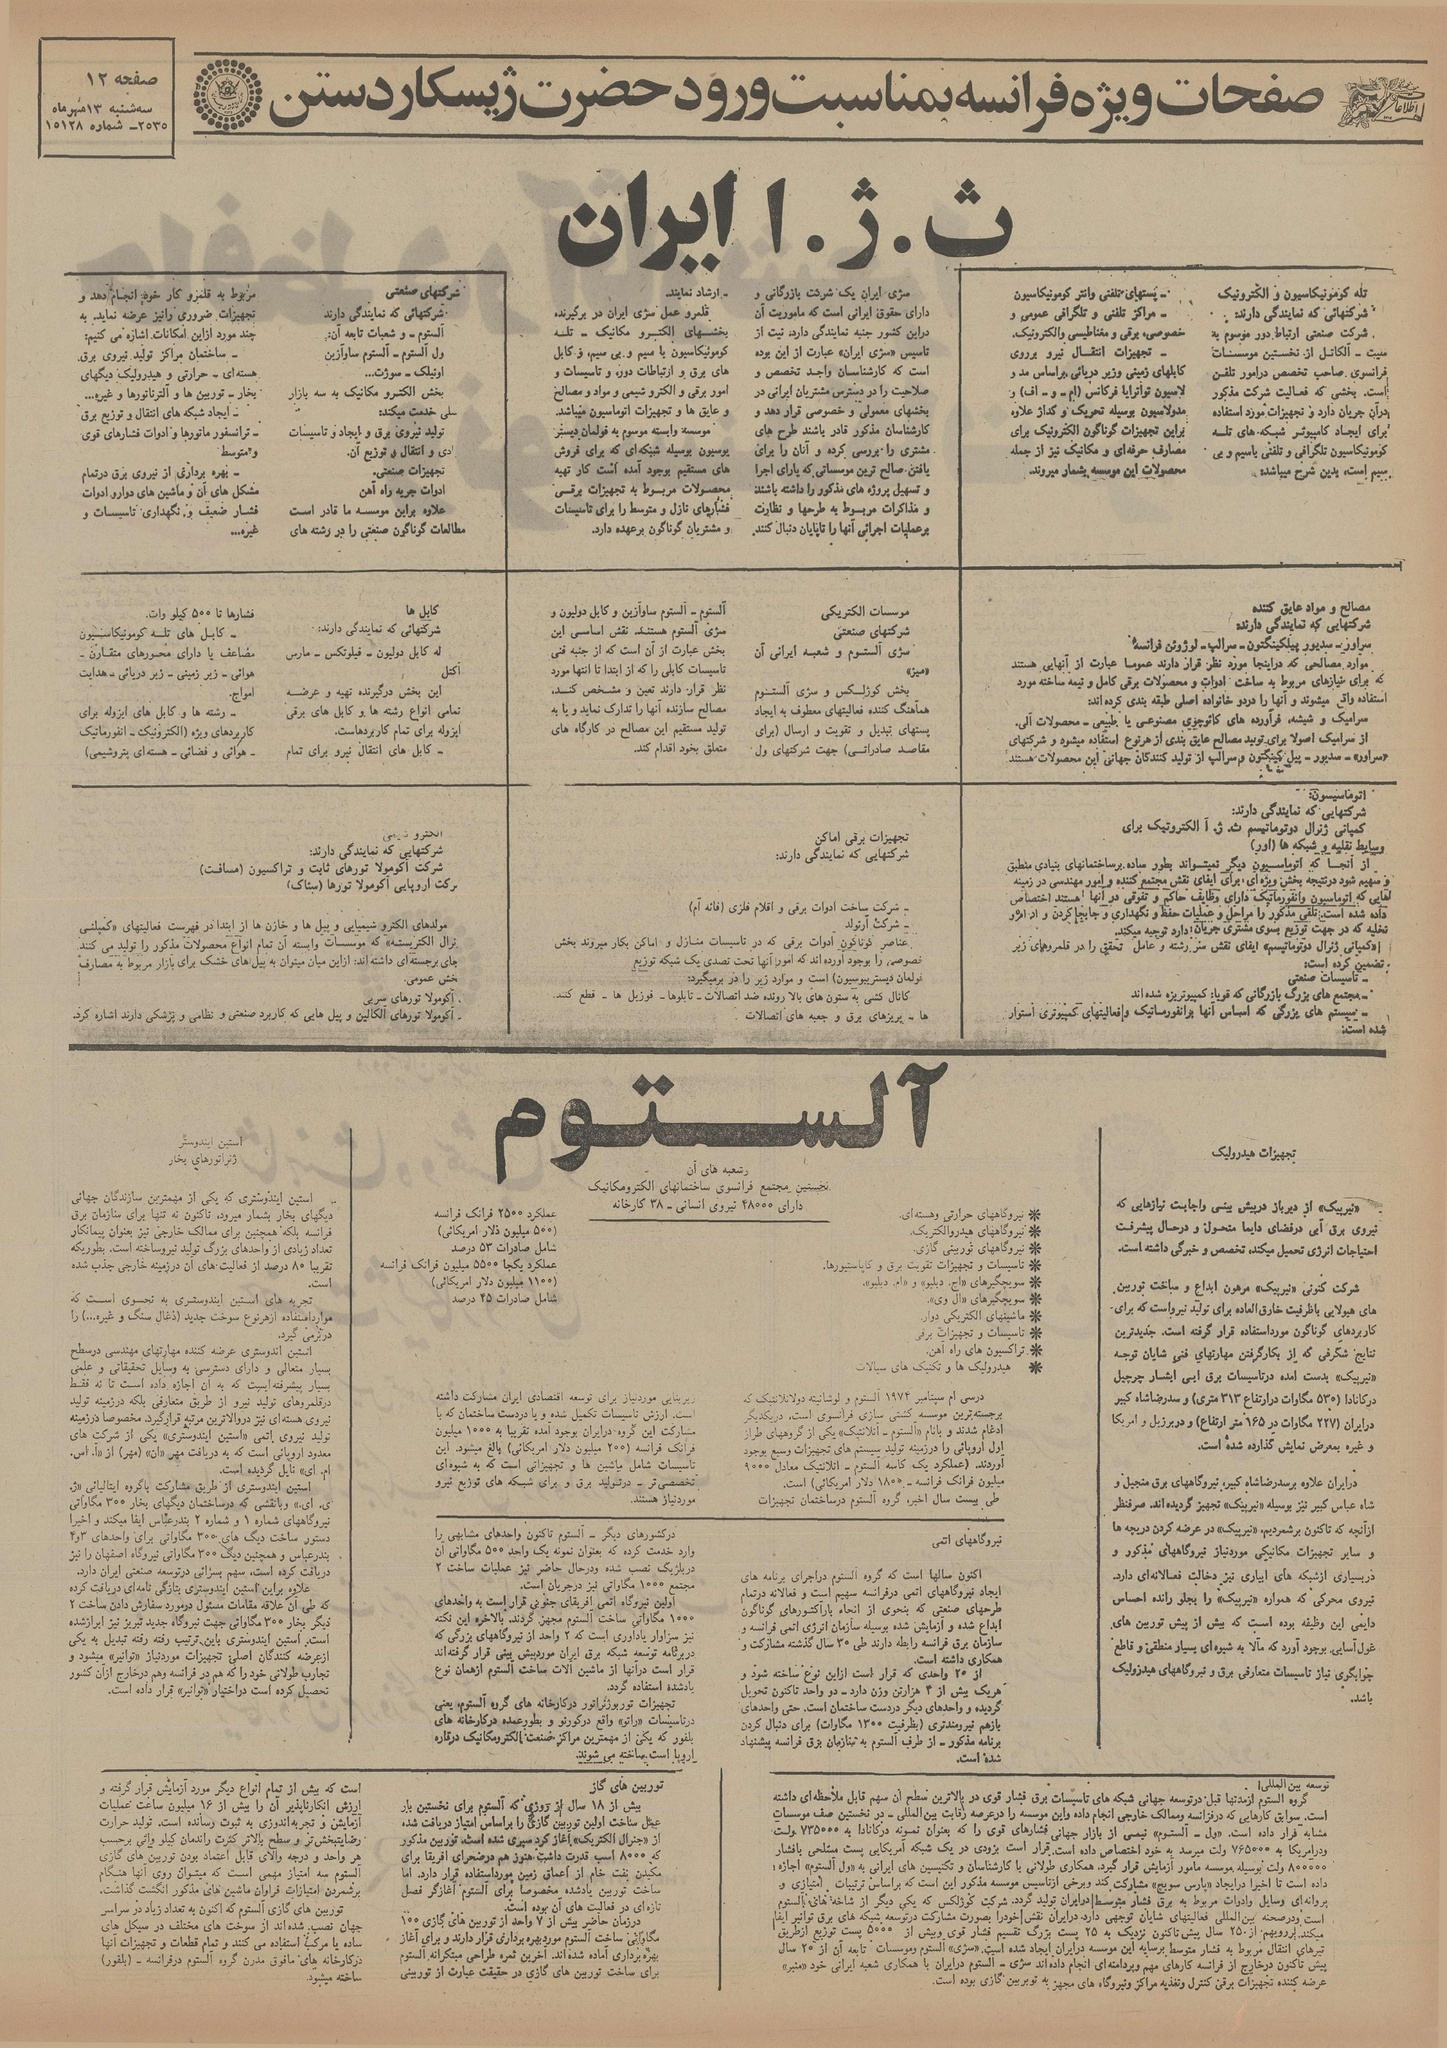 صفحات ویژه فرانسه بمناسبت ورود حضرت ژیسکاردستن
صفحه ۱۲
سه‌شنبه ۱۳ مهر ماه
۲۵۳۵ـ شماره ۱۵۱۲۸
ث . ژ . ا ایران
تله کومونیکاسیون و الکترونیک
شرکتهائی که نمایندگی دارند:
شرکت صنعتی ارتباط دور موسوم به
فرانسوی صاحب تخصص درامور تلفن
است. بخشی که فعالیت شرکت مذکور
درآن جریان دارد و تجهیزات مورد استفاده
برای ایجاد کامپیوتر شبکه های تله
کومونیکاسیون تلگرافی و تلفنی باسیم و بی
سیم است، بدین شرح میباشد:
ـ پستهای تلفنی وانتر کومونیکاسیون
ـ مراکز تلفنی و تلگرافی عمومی و
خصوصی، برقی و مغناطیسی والکترونیک.
ـ تجهیزات انتقال نیرو برروی
کابلهای زمینی وزیر دریائی، براساس مد و
مدولاسیون بوسیله تحریک و گداز علاوه
براین تجهیزات گوناگون الکترونیک برای
مصارف حرفه‌ای و مکانیک نیز از جمله
محصولات این موسسه بشمار میروند.
سژی ایران یک شرکت بازرگانی و
دارای حقوق ایرانی است که ماموریت آن
دراین کشور جنبه نمایندگی دارد. نیت از
تاسیس «سژی ایران» عبارت از این بوده
است که کارشناسان واجد تخصص و
صلاحیت را در دسترس مشتریان ایرانی در
بخشهای معمولی و خصوصی قرار دهد و
کارشناسان مذکور قادر باشند طرح های
مشتری را بررسی کرده و آنان را برای
یافتن صالح ترین موسساتی که یارای اجرا
و تسهیل پروژه های مذکور را داشته باشند
و مذاکرات مربوط به طرحها و نظارت
برعملیات اجرائی آنها را تاپایان دنبال کنند
ـ ارشاد نمایند.
قلمرو عمل سژی ایران در برگیرنده
بخشهای الکترو مکانیک ـ تله
کومونیکاسیون با سیم و بی سیم، و کابل
های برق و ارتباطات دور، و تاسیسات و
امور برقی و الکترو شیمی و مواد و مصالح
و عایق ها و تجهیزات اتوماسیون میباشد.
موسسه وابسته موسوم به فولمان دیستر
یوسیون بوسیله شبکه‌ای که برای فروش
های مستقیم بوجود آمده است کار تهیه
محصولات مربوط به تجهیزات برقی
فشارهای نازل و متوسط را برای تاسیسات
و مشتریان گوناگون برعهده دارد.
شرکتهای صنعتی
شرکتهائی که نمایندگی دارند
آلستوم ـ و شعبات تابعه آن:
ول آلستوم ـ آلستوم ساوآزین
اونیلک ـ سوژت...
بخش الکترو مکانیک به سه بازار
خدمت میکند:
تولید نیروی برق و ایجاد و تاسیسات
و انتقال و توزیع آن.
تجهیزات صنعتی.
ادوات جریه راه آهن
علاوه براین موسسه ما قادر است
مطالعات گوناگون صنعتی را در رشته های
مربوط به قلمرو کار خود انجام دهد و
تجهیزات ضروری رانیز عرضه نماید. به
چند مورد ازاین امکانات اشاره می کنیم:
ـ ساختمان مراکز تولید نیروی برق
هسته‌ای ـ حرارتی و هیدرولیک دیگهای
بخار ـ توربین ها و آلترناتورها و غیره...
ـ ایجاد شبکه های انتقال و توزیع برق
ـ ترانسفور ماتورها و ادوات فشارهای قوی
و متوسط
ـ بهره برداری از نیروی برق درتمام
مشکل های آن و ماشین های دوارو ادوات
فشار ضعیف و نگهداری تاسیسات و
غیره...
مصالح و مواد عایق کننده
شرکتهایی که نمایندگی دارند:
سراور ـ سدیور پیلکینگتون ـ سرالپ ـ لوژوئن فرانسه
موارد مصالحی که دراینجا مورد نظر قرار دارند عموما عبارت از آنهایی هستند
که برای نیازهای مربوط به ساخت ادوات و محصولات برقی کامل و نیمه ساخته مورد
استفاده واقع میشوند و آنها را دردو خانواده اصلی طبقه بندی کرده‌اند:
سرامیک و شیشه، فرآورده های کائوچوی مصنوعی یا طبیعی ـ محصولات آلی.
از سرامیک اصولا برای تولید مصالح عایق بندی از هرنوع استفاده میشود و شرکتهای
«سراور» ـ سدیور ـ پیل کینگتون و سرالپ از تولید کنندگان جهانی این محصولات هستند
موسسات الکتریکی
شرکتهای صنعتی
سژی آلستوم و شعبه ایرانی آن
«میز»
بخش کوژلکس و سژی آلستوم
هماهنگ کننده فعالیتهای معطوف به ایجاد
پستهای تبدیل و تقویت و ارسال (برای
مقاصد صادراتی) جهت شرکتهای ول
آلستوم ـ آلستوم ساوآزین و کابل دولیون و
سژی آلستوم هستند. نقش اساسی این
بخش عبارت از آن است که از جنبه فنی
تاسیسات کابلی را که از ابتدا تا انتها مورد
نظر قرار دارند تعین و مشخص کند،
مصالح سازنده آنها را تدارک نماید و یا به
تولید مستقیم این مصالح در کارگاه های
متعلق بخود اقدام کند.
کابل ها
شرکتهائی که نمایندگی دارند:
له کابل دولیون ـ فیلوتکس ـ مارس
آکتل
این بخش درگیرنده تهیه و عرضه
تمامی انواع رشته ها و کابل های برقی
ایزوله برای تمام کاربردهاست.
ـ کابل های انتقال نیرو برای تمام
فشارها تا ۵۰۰ کیلو وات.
ـ کابل های تله کومونیکاسیون
مضاعف یا دارای محورهای متقارن ـ
هوائی ـ زیر زمینی ـ زیر دریائی ـ هدایت
امواج.
ـ رشته ها و کابل های ایزوله برای
کاربردهای ویژه (الکترونیک ـ انفورماتیک
ـ هوائی و فضائی ـ هسته‌ای پتروشیمی)
اتوماسیون:
شرکتهایی که نمایندگی دارند:
کمپانی ژنرال دوتوماتیسم ث. ژ. آ الکترونیک برای
وسایط نقلیه و شبکه ها (اور)
ـ تاسیسات صنعتی
ـ مجتمع های بزرگ بازرگانی که قویا کمپیوتریزه شده اند
ـ سیستم های بزرگی که اساس آنها برانفورماتیک وفعالیتهای کمپیوتری استوار
شده است:
تجهیزات برقی اماکن
شرکتهایی که نمایندگی دارند:
ـ شرکت ساخت ادوات برقی و اقلام فلزی (فائه آم)
ـ شرکت آرنولد
عناصر گوناگون ادوات برقی که در تاسیسات منازل و اماکن بکار میروند بخش
خصوصی را بوجود آورده اند که امور آنها تحت تصدی یک شبکه توزیع
فولمان دیستریبوسیون) است و موارد زیر را در برمیگیرد:
کانال کشی به ستون های بالا رونده ضد اتصالات ـ تابلوها ـ فوزیل ها ـ قطع کننده
ها ـ پریزهای برق و جعبه های اتصالات
شرکتهایی که نمایندگی دارند:
شرکت آکومولا تورهای ثابت و تراکسیون (مسافت)
مولدهای الکترو شیمیایی و پیل ها و خازن ها از ابتدا در فهرست فعالیتهای «کمپلنی
نرال الکتریسته» که موسسات وابسته آن تمام انواع محصولات مذکور را تولید می کنند
جای برجسته‌ای داشته اند؛ ازاین میان میتوان به پیل های خشک برای بازار مربوط به مصارف
خش عمومی.
. آکومولا تورهای سربی
ـ آکومولا تورهای آلکالین و پیل هایی که کاربرد صنعتی و نظامی و پزشکی دارند اشاره کرد.
آلستوم
نخستین مجتمع فرانسوی ساختمانهای الکترومکانیک
دارای ۴۸۰۰۰ نیروی انسانی ـ ۳۸ کارخانه
تجهیزات هیدرولیک
«نیرپیک» از دیرباز درپیش بینی واجابت نیازهایی که
نیروی برق آبی درفضای دایما متحول و درحال پیشرفت
احتیاجات انرژی تحمیل میکند، تخصص و خبرگی داشته است.
شرکت کنونی «نیرپیک» مرهون ابداع و ساخت توربین
های هیولایی باظرفیت خارق العاده برای تولید نیرواست که برای
کاربردهای گوناگون مورداستفاده قرار گرفته است. جدیدترین
نتایج شگرفی که از بکارگرفتن مهارتهای فنی شایان توجه
«نیرپیک» بدست آمده درتاسیسات برق آبی آبشار چرچیل
درکانادا (۵۳۰ مگاوات درارتفاع ۳۱۳ متری) و سدرضاشاه کبیر
درایران (۲۲۷ مگاوات در ۱۶۵ متر ارتفاع) و دربرزیل و امریکا
و غیره بمعرض نمایش گذارده شده است.
درایران علاوه برسدرضاشاه کبیر، نیروگاههای برق منجیل و
شاه عباس کبیر نیز بوسیله «نیرپیک» تجهیز گردیده اند. صرفنظر
ازآنچه که تاکنون برشمردیم، «نیرپیک» در عرضه کردن دریچه ها
و سایر تجهیزات مکانیکی موردنیاز نیروگاههای مذکور و
دربسیاری ازشبکه های آبیاری نیز دخالت فعالانه‌ای دارد.
نیروی محرکی که همواره «نیرپیک» را بجلو رانده احساس
دایمی این وظیفه بوده است که بیش از پیش توربین های
غول‌آسایی بوجود آورد که مآلا به شیوه‌ای بسیار منطقی و قاطع
جوابگوی نیاز تاسیسات متعارفی برق و نیروگاههای هیدرولیک
باشد.
❋ نیروگاههای حرارتی وهسته‌ای.
❋ نیروگاههای هیدروالکتریک.
❋ نیروگاههای توربینی گازی.
❋ تاسیسات و تجهیزات تقویت برق و کاپاستیورها.
❋ سویچگیرهای «اچ. دبلیو» و «ام. دبلیو».
❋ سویچگیرهای «ال وی».
❋ ماشینهای الکتریکی دوار.
❋ تاسیسات و تجهیزات برقی
❋ تراکسیون های راه آهن.
❋ هیدرولیک ها و تکنیک های سیالات
عملکرد ۲۵۰۰ فرانک فرانسه
(۵۰۰ میلیون دلار امریکائی)
شامل صادرات ۵۳ درصد
عملکرد یکجا ۵۵۰۰ میلیون فرانک فرانسه
(۱۱۰۰ میلیون دلار امریکائی)
شامل صادرات ۴۵ درصد
درسی ام سپتامبر ۱۹۷۴ آلستوم و لوشانیته دولاتلانتیک که
برجسته‌ترین موسسه کشتی سازی فرانسوی است، دریکدیگر
ادغام شدند و بانام «آلستوم ـ آتلانتیک» یکی از گروههای طراز
اول اروپائی را درزمینه تولید سیستم های تجهیزات وسیع بوجود
آوردند. (عملکرد یک کاسه آلستوم ـ آتلانتیک معادل ۹۰۰۰
میلیون فرانک فرانسه ـ ۱۸۰۰ دلار امریکائی) است.
طی بیست سال اخیر، گروه آلستوم درساختمان تجهیزات
زیربنایی موردنیاز برای توسعه اقتصادی ایران مشارکت داشته
است. ارزش تاسیسات تکمیل شده و یا دردست ساختمان که با
مشارکت این گروه درایران بوجود آمده تقریبا به ۱۰۰۰ میلیون
فرانک فرانسه (۲۰۰ میلیون دلار امریکائی) بالغ میشود. این
تاسیسات شامل ماشین ها و تجهیزاتی است که به شیوه‌ای
تخصصی‌تر ـ درتولید برق و برای شبکه های توزیع نیرو
موردنیاز هستند.
نیروگاههای اتمی
اکنون سالها است که گروه آلستوم دراجرای برنامه های
ایجاد نیروگاههای اتمی درفرانسه سهیم است و فعالانه درتمام
طرحهای صنعتی که بنحوی از انحاء بارآکتورهای گوناگون
ابداع شده و آزمایش شده بوسیله سازمان انرژی اتمی فرانسه و
سازمان برق فرانسه رابطه دارند طی ۳۰ سال گذشته مشارکت و
همکاری داشته است.
از ۲۰ واحدی که قرار است ازاین نوع ساخته شود و
هریک بیش از ۴ هزارتن وزن دارد ـ دو واحد تاکنون تحویل
گردیده و واحدهای دیگر دردست ساختمان است. حتی واحدهای
بازهم نیرومندتری (بظرفیت ۱۳۰۰ مگاوات) برای دنبال کردن
برنامه مذکور ـ از طرف آلستوم به سازمان برق فرانسه پیشنهاد
شده است.
درکشورهای دیگر ـ آلستوم تاکنون واحدهای مشابهی را
وارد خدمت کرده که بعنوان نمونه یک واحد ۵۰۰ مگاواتی آن
دربلژیک نصب شده ودرحال حاضر نیز عملیات ساخت ۲
مجتمع ۱۰۰۰ مگاواتی نیز درجریان است.
اولین نیروگاه اتمی آفریقای جنوبی قرار است به واحدهای
۱۰۰۰ مگاواتی ساخت آلستوم مجهز گردند. بالاخره این نکته
نیز سزاوار یادآوری است که ۲ واحد از نیروگاههای بزرگی که
دربرنامه توسعه شبکه برق ایران موردپیش بینی قرار گرفته‌اند
قرار است درآنها از ماشین آلات ساخت آلستوم ازهمان نوع
یادشده استفاده گردد.
تجهیزات توربوژنراتور درکارخانه های گروه آلستوم، یعنی
درتاسیسات «راتو» واقع درکورنو و بطورعمده درکارخانه های
بلفور که یکی از مهمترین مراکز صنعت الکترومکانیک درقاره
اروپا است، ساخته می شوند.
استین ایندوستر
ژنراتورهای بخار
استین ایندوستری که یکی از مهمترین سازندگان جهانی
دیگهای بخار بشمار میرود، تاکنون نه تنها برای سازمان برق
فرانسه بلکه همچنین برای ممالک خارجی نیز بعنوان پیمانکار
تعداد زیادی از واحدهای بزرگ تولید نیروساخته است. بطوریکه
تقریبا ۸۰ درصد از فعالیت های آن درزمینه خارجی جذب شده
است.
تجربه های استین ایندوستری به نحوی است که
مورداستفاده ازهرنوع سوخت جدید (ذغال سنگ و غیره...) را
دربرمی گیرد.
استین اندوستری عرضه کننده مهارتهای مهندسی درسطح
بسیار متعالی و دارای دسترسی به وسایل تحقیقاتی و علمی
بسیار پیشرفته‌ایست که به آن اجازه داده است تا نه فقط
درقلمروهای تولید نیرو از طریق متعارفی بلکه درزمینه تولید
نیروی هسته‌ای نیز دروالاترین مرتبه قرارگیرد. مخصوصا درزمینه
تولید نیروی اتمی «استین ایندوستری» یکی از شرکت های
معدود اروپائی است که به دریافت مهر «ان» (مهر) از «آ. اس.
ام. ای» نایل گردیده است.
استین ایندوستری از طریق مشارکت باگروه ایتالیائی «ژ.
ی. ای.» وبانقشی که درساختمان دیگهای بخار ۳۰۰ مگاواتی
نیروگاههای شماره ۱ و شماره ۲ بندرعباس ایفا میکند و اخیرا
دستور ساخت دیگ های ۳۰۰ مگاواتی برای واحدهای ۳و۴
بندرعباس و همچنین دیگ ۳۰۰ مگاواتی نیروگاه اصفهان را نیز
دریافت کرده است، سهم بسزائی درتوسعه صنعتی ایران دارد.
علاوه براین استین ایندوستری بتازگی نامه‌ای دریافت کرده
که طی آن علاقه مقامات مسئول درمورد سفارش دادن ساخت ۲
دیگر بخار ۳۰۰ مگاواتی جهت نیروگاه جدید تبریز نیز ابرازشده
است. استین ایندوستری باین ترتیب رفته رفته تبدیل به یکی
ازعرضه کنندگان اصلی تجهیزات موردنیاز «توانیر» میشود و
تجارب طولانی خود را که هم در فرانسه وهم درخارج ازآن کشور
تحصیل کرده است دراختیار «توانیر» قرار داده است.
توسعه بین‌المللی!
گروه آلستوم ازمدتها قبل درتوسعه جهانی شبکه های تاسیسات برق فشار قوی در بالاترین سطح آن سهم قابل ملاحظه‌ای داشته
است. سوابق کارهایی که درفرانسه وممالک خارجی انجام داده واین موسسه را درعرصه رقابت بین‌المللی ـ در نخستین صف موسسات
مشابه قرار داده است. «ول ـ آلستوم» نیمی از بازار جهانی فشارهای قوی را که بعنوان نمونه درکانادا به ۷۳۵۰۰۰ ولت
ودرامریکا به ۷۶۵۰۰۰ ولت میرسد به خود اختصاص داده است. قرار است بزودی در یک شبکه آمریکایی پست مسلحی بافشار
۸۰۰۰۰۰ ولت بوسیله موسسه مامور آزمایش قرار گیرد. همکاری طولانی با کارشناسان و تکنیسین های ایرانی به «ول آلستوم» اجازه
داده است تا اخیرا درایجاد «پارس سویچ» مشارکت کند وبرخی ازتاسیس موسسه مذکور این است که براساس ترتیبات امتیازی و
پروانه‌ای وسایل وادوات مربوط به برق فشار متوسط درایران تولید گردد. شرکت کوژلکس که یکی دیگر از شاخه هایی آلستوم
است ودرصحنه بین‌المللی فعالیتهای شایان توجهی دارد، درایران نقش خودرا بصورت مشارکت درتوسعه شبکه های برق توانیر ایفا
میکند. ازرویهم از ۲۵۰ سال پیش تاکنون نزدیک به ۲۵ پست بزرگ تقسیم فشار قوی وبیش از ۵۰۰۰ پست توزیع ازطریق
تیرهای انتقال مربوط به فشار متوسط برسایه این موسسه درایران ایجاد شده است. «سژی» آلستوم وموسسات تابعه آن از ۲۰ سال
پیش تاکنون درخارج از فرانسه کارهای مهم وپردامنه‌ای انجام داده‌اند سژی ـ آلستوم درایران با همکاری شعبه ایرانی خود «متیر»
عرضه کننده تجهیزات برقی کنترل وتغذیه مراکز ونیروگاه های مجهز به توبربین گازی بوده است.
توربین های گاز
بیش از ۱۸ سال از روزی که آلستوم برای نخستین بار
عمل ساخت اولین توربین گازی را براساس امتیاز دریافت شده
از «جنرال الکتریک» آغاز کرد سپری شده است. توربین مذکور
که ۸۰۰۰ اسب قدرت داشت هنوز هم درصحرای افریقا برای
مکیدن نفت خام از اعماق زمین مورداستفاده قرار دارد. اما
ساخت توربین یادشده مخصوصا برای آلستوم آغازگر فصل
تازه‌ای در فعالیت های آن بوده است.
درزمان حاضر بیش از ۷ واحد از توربین های گازی ۱۰۰
مگاواتی ساخت آلستوم موردبهره برداری قرار دارند و برای آغاز
بهره‌برداری آماده شده‌اند. آخرین ثمره طراحی مبتکرانه آلستوم
برای ساخت توربین های گازی در حقیقت عبارت از توربینی
است که بیش از تمام انواع دیگر مورد آزمایش قرار گرفته و
ارزش انکارناپذیر آن را بیش از ۱۶ میلیون ساعت عملیات
آزمایش و تجربه‌اندوزی به ثبوت رسانده است. تولید حرارت
رضایتبخش‌تر و سطح بالاتر کثرت راندمان کیلو واتی برحسب
هر واحد و درجه والای قابل اعتماد بودن توربین های گازی
آلستوم سه امتیاز مهمی است که میتوان روی آنها هنگام
برشمردن امتیازات فراوان ماشین های مذکور انگشت گذاشت.
توربین های گازی آلستوم که اکنون به تعداد زیاد در سراسر
جهان نصب شده‌اند از سوخت های مختلف در سیکل های
ساده یا مرکب استفاده می کنند و تمام قطعات و تجهیزات آنها
درکارخانه های مافوق مدرن گروه آلستوم درفرانسه ـ (بلفور)
ساخته میشود.